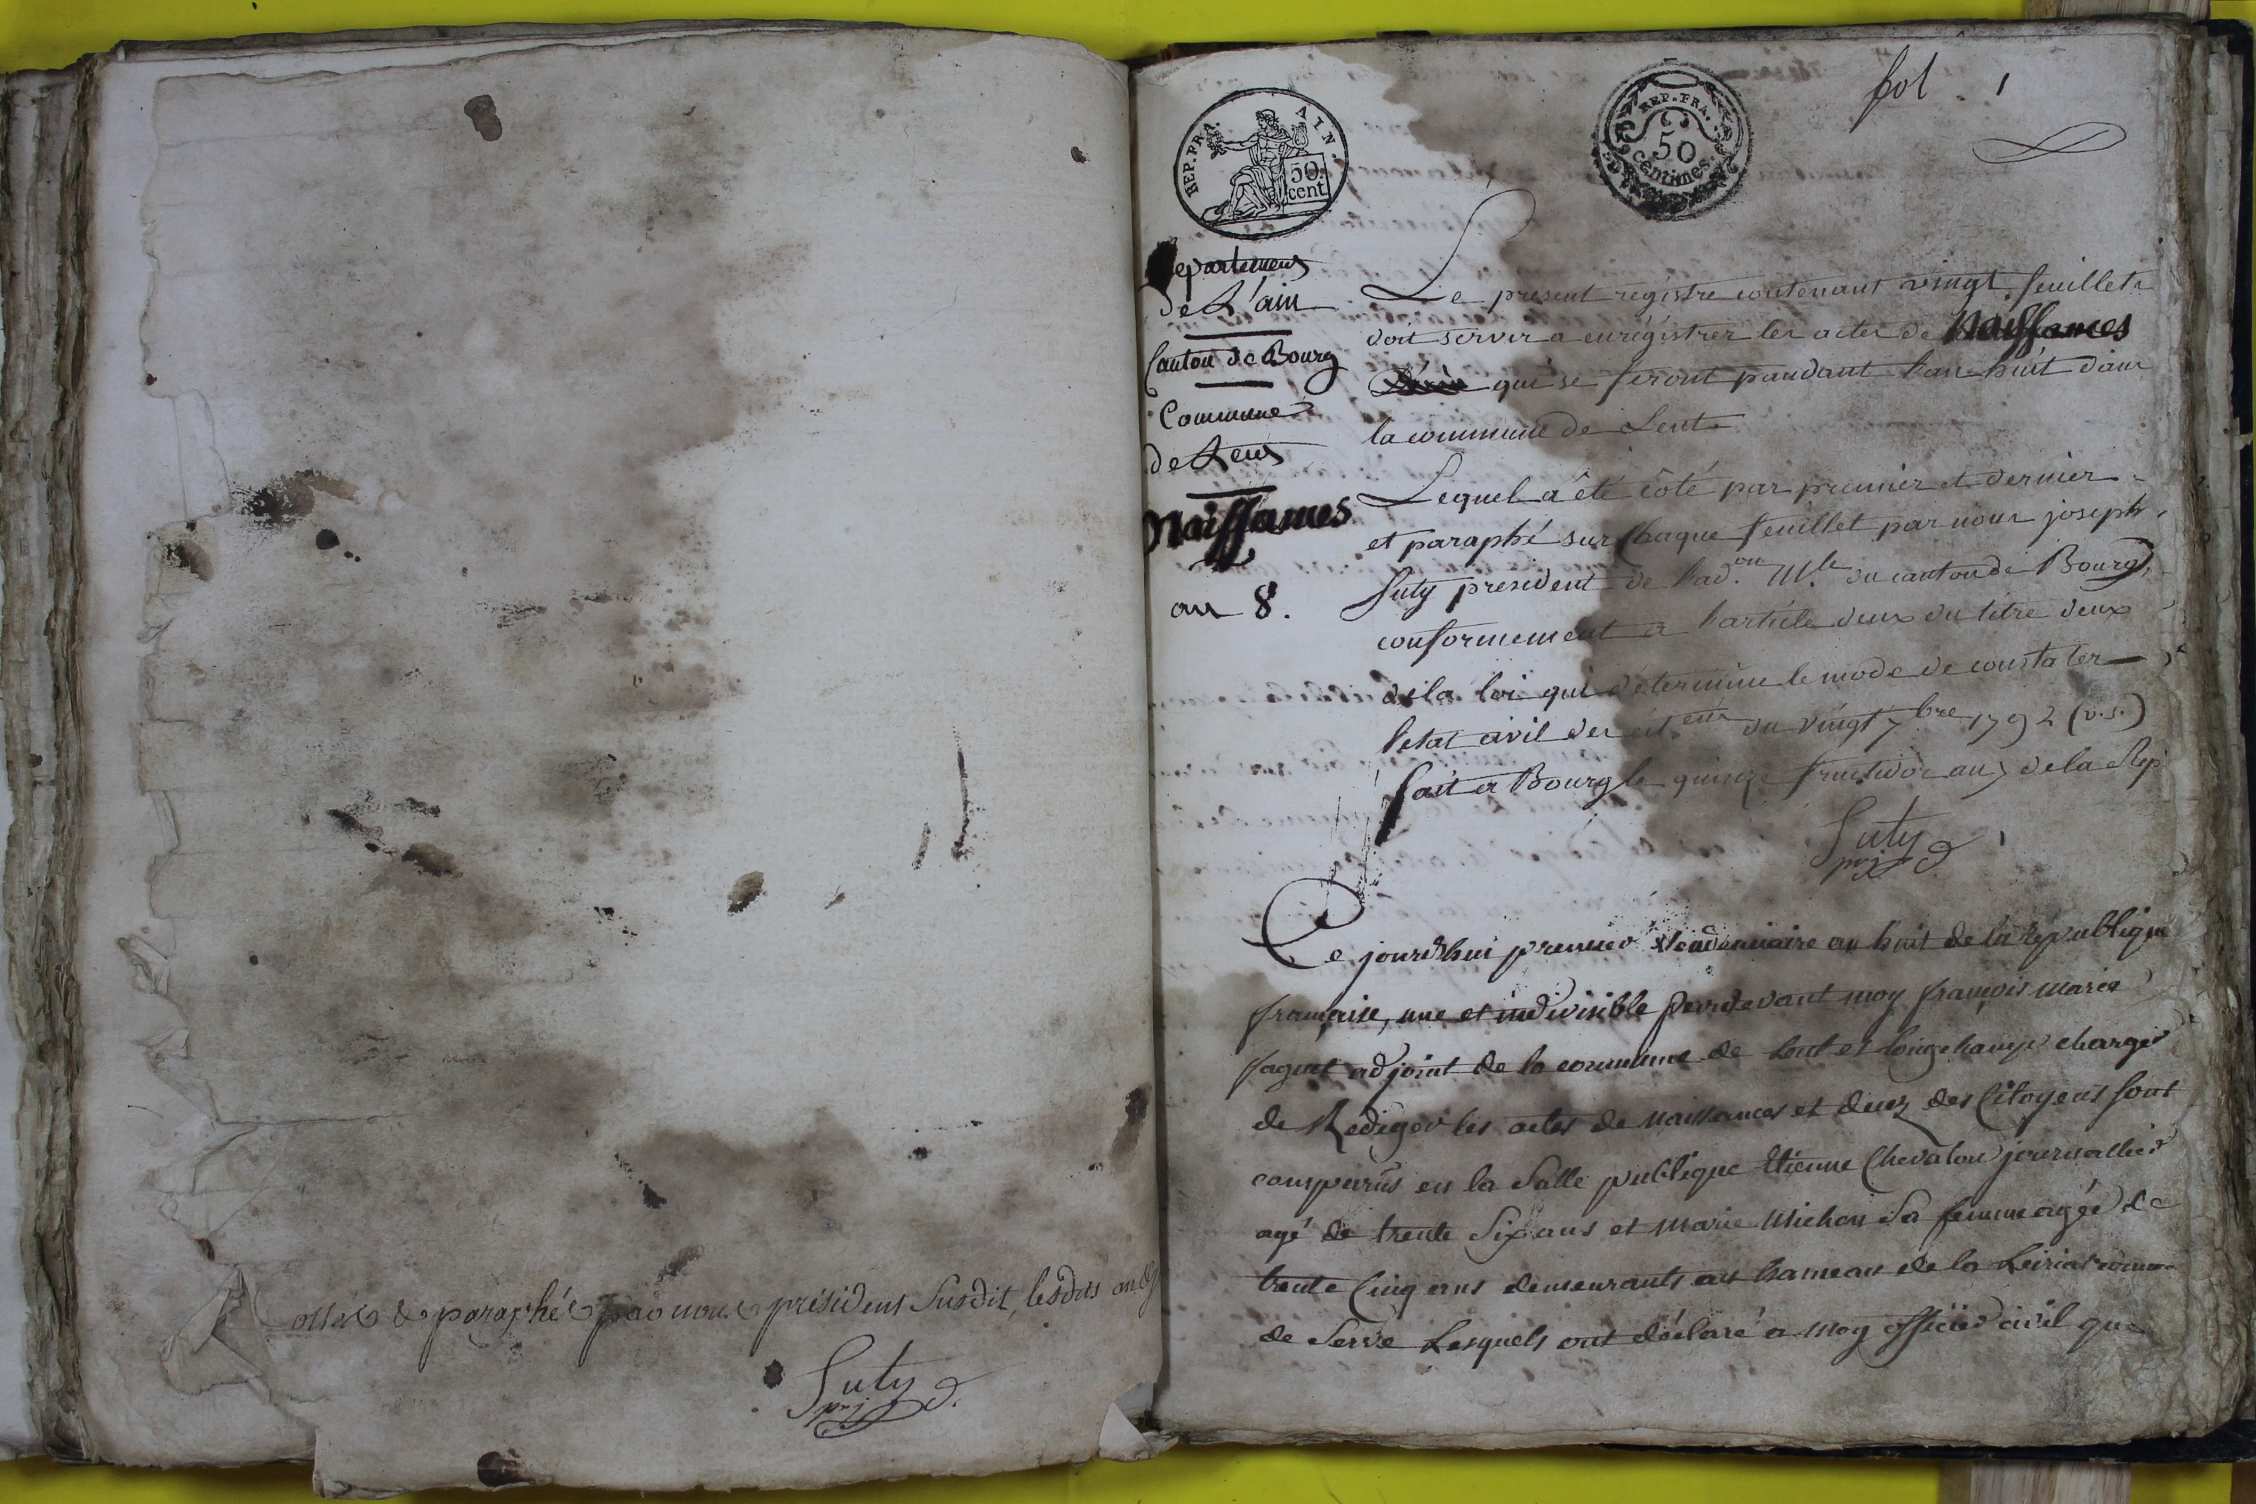 cottés & paraphés par nous président susdit, lesdits an &
Suty
prés
REP. FRA.
AIN.
50.
cent
REP. FRA.
50
centimes.
fol 1
Departement
de L'ain
Canton de Bourg
Commune
de Lent
Naissances
an 8.
Le présent registre contenant vingt feuillets
doit servir a enrégistrer les actes de Naissances
qui se feront pandant l'an huit dans
la commune de Lent
Lequel a été côté par premier et dernier
et paraphé sur chaque feuillet par nous joseph
Suty president de l'ad.on M.le du canton de Bourg,
conformement a l'article deux du titre deux
de la loi qui détermine le mode de constater
l'etat civil des cit.ens du vingt 7bre 1792 (v.s.)
fait a Bourg le quinze fructidor an 7 de la Rep
Suty
prés
Ce jourd'hui premier Vendemiaire an huit de la république
française, une et indivisible pardevant moy françois marie
faguet adjoint de la commune de Lent et longchamp chargé
de Rediger les actes de naissances et decez des Citoyens sont
comparûs en la Salle publique Etienne Chevalon journallier
agé de trente Six ans et Marie Michon Sa femme agée de
trente Cinq ans demeurants au hameau de la Leiriat
de Serve Lesquels ont déclaré a moy officier civil que